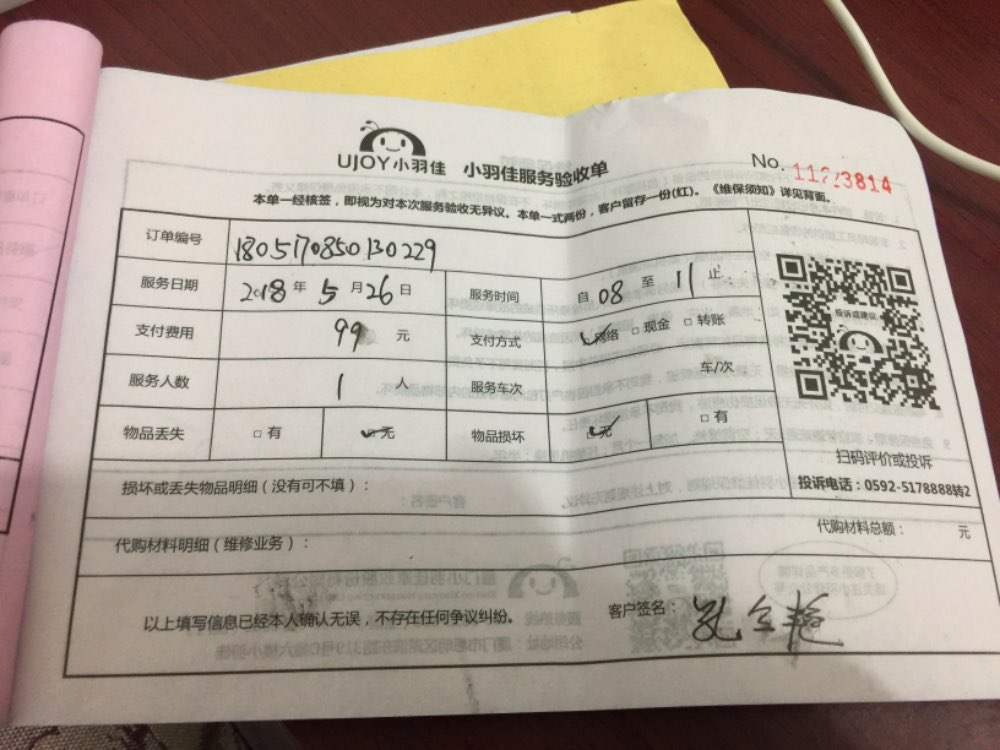 UJOY小羽佳 小羽佳服务验收单
No. 11273814
本单一经核签，即视为对本次服务验收无异议。本单一式两份，客户留存一份(红)。《维保须知》详见背面。
订单编号 180517085030229
服务日期 2018 年 5 月 26 日 服务时间 自 08 至 11 止
支付费用 99 元 支付方式 ☑网络 □现金 □转账
服务人数 1 人 服务车次 车/次
物品丢失 □有 ☑无 物品损坏 ☑无 □有
投诉或建议
扫码评价或投诉
投诉电话：0592-5178888转2
损坏或丢失物品明细（没有可不填）：
代购材料明细（维修业务）： 代购材料总额： 元
以上填写信息已经本人确认无误，不存在任何争议纠纷。 客户签名：